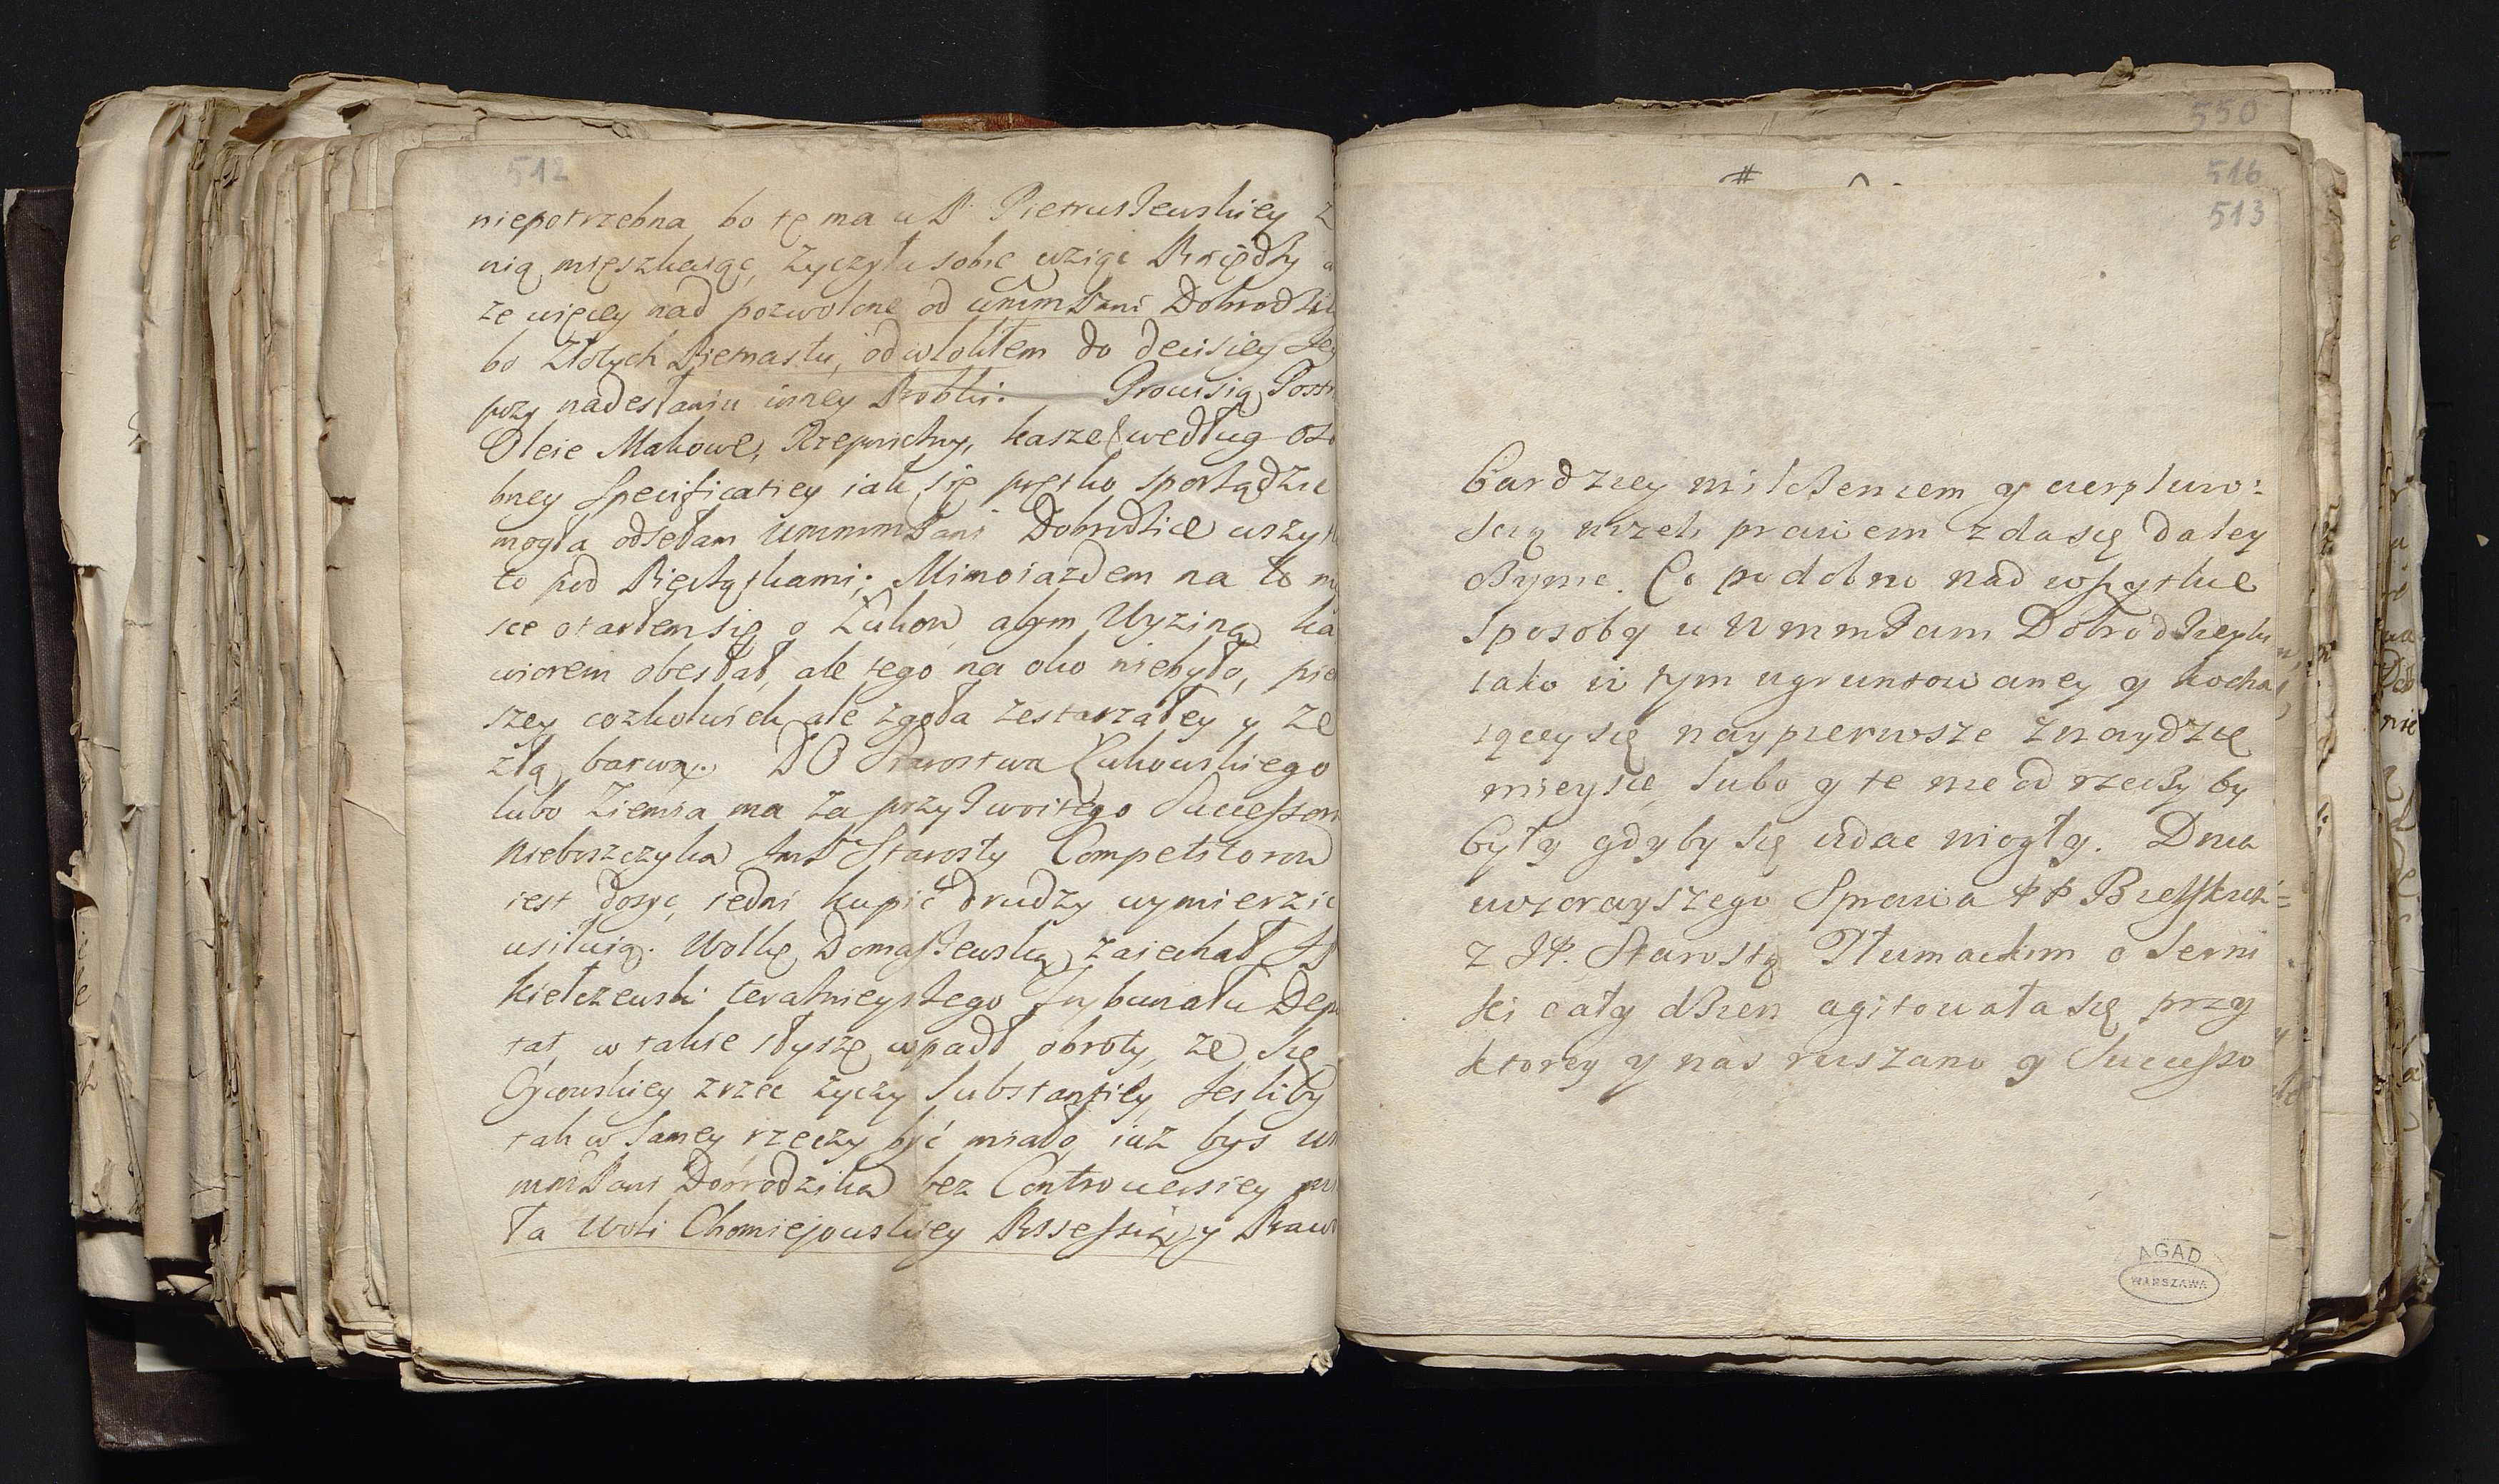 512
niepotrzebna bo tę ma u P. Pietruszewskiey z
nią mięszkaiąc, życzyła sobie wziąc Pieniędzy a
że więcey nad pozwolone od WMMPani Dobrodzi
bo Złotych Piernastu, odwlokłem do decisiey Jey
przy nadesłaniu inney Probki. Prowisią Postn
Oleie Makowe, Rzepniczny, kasze według oso
bney Specificatiey iak się prętko sporządzic
mogła odsełam WMMMPani Dobrodzice wszyt
to pod Pieczątkami; Mimoiazdem na to m
sce otarłem się o Łukow, abym Wyziną ka
wiorem obesłał, ale tego na oko niebyło, pie
szey cożkolwiek ale zgoła zestarzałey y ze
złą barwą. DO Starostwa Łukowskiego
lubo Ziemia ma za przyzwoitego Successora
Nieboszczyka JmP Starosty Competitorow
iest dosyc, iedni kupić drudzy wymierzic
usiłuią. Wolkę Domaszewską zaiechał JP
Kiełczewski teraznieyszego Trybunału Depu
tat, w takie słyszę wpadł obroty, że się
Oycowskiey zrzec życzy Substantiey, Jesliby
tak w samey rzeczy być miało, iuż byś W
MMPani Dobrodzika bez Controwersiey
ła Woli Chomiejowskiey Possessią y Praw
550
516
513
#
Bardziey milczeniem y cierpliwo:
scią niżeli prawem zda się daley
czynic. Co podobno nad wszytkie
Sposoby u WMMPani Dobrodzieyki
iako w tym ugruntowaney y kocha
iącey się naypierwsze znaydzie
mieysce, lubo y te nie od rzeczy by
były gdyby się udac mogły. Dnia
wzorayszego Sprawa PP
z JP. Starostą Tłumackim o Serni
ki cały dzien agitowała się przy
ktorey y nas ruszano y Successo
AGAD
WARSZAWA